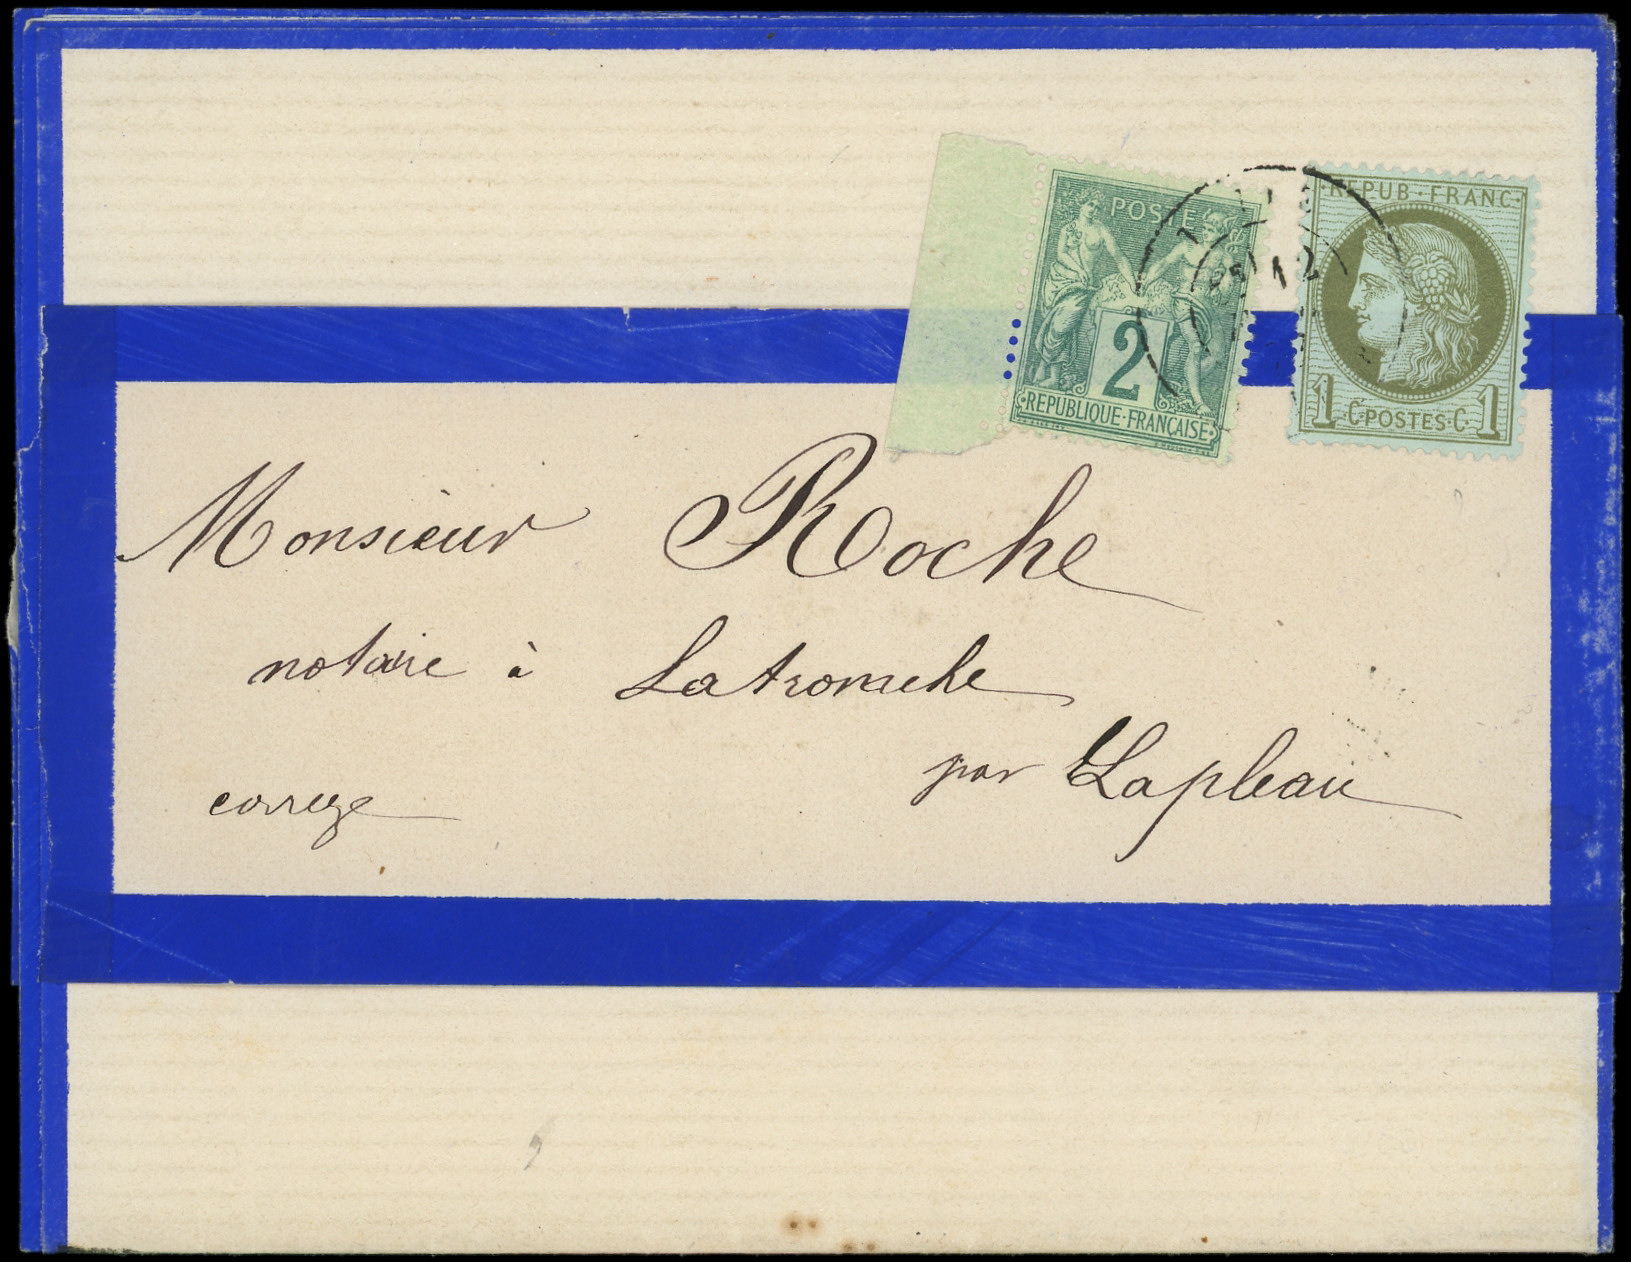 POSTE
2
REPUBLIQUE·FRANÇAISE
·REPUB·FRANC·
1 C·POSTES·C· 1
Monsieur Roche
notaire à Latronche
par Lapleau
correze